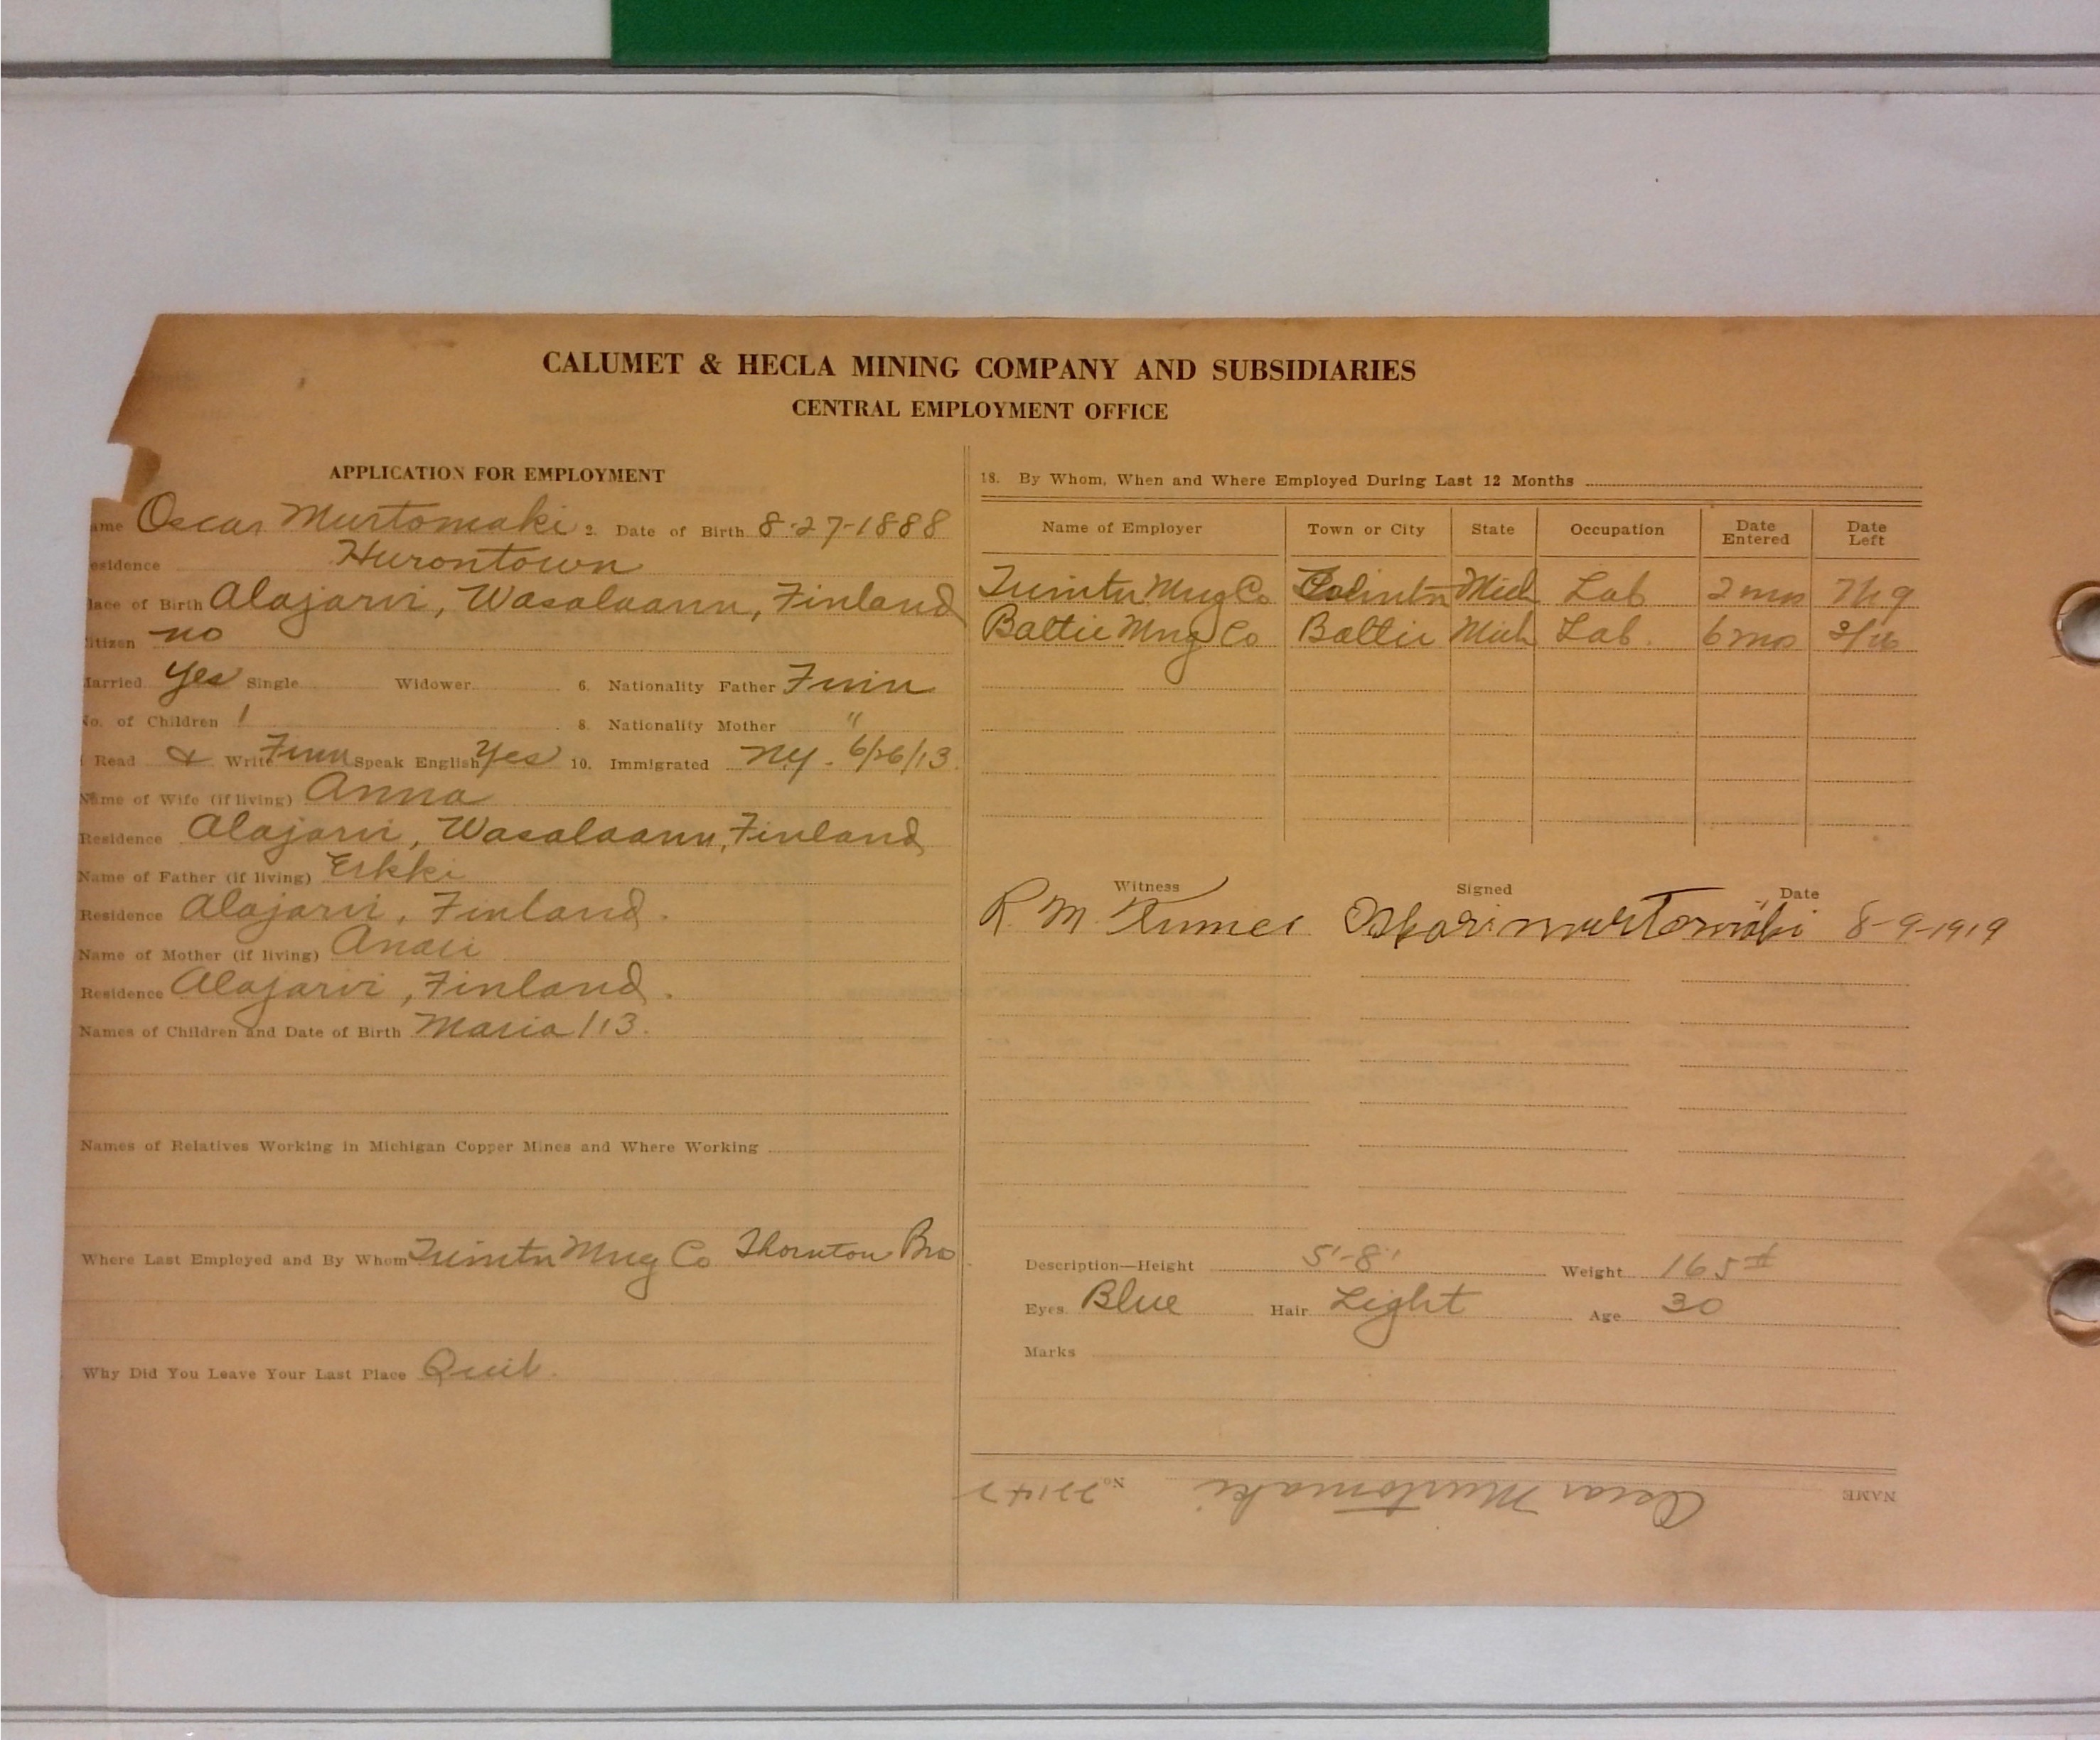 CALUMET & HECLA MINING COMPANY AND SUBSIDIARIES
CENTRAL EMPLOYMENT OFFICE
APPLICATION FOR EMPLOYMENT
ame Oscar Murtomaki 2. Date of Birth 8-27-1888
esidence Hurontown
lace of Birth Alajarvi, Wasalaann, Finland
itizen no
arried yes Single Widower 6. Nationality Father Finn
No. of Children 1 8. Nationality Mother "
Read & Write Finn Speak English Yes 10. Immigrated N.Y. 6/26/13
Name of Wife (if living) Anna
Residence Alajarvi, Wasalaann, Finland
Name of Father (if living) Erkki
Residence Alajarvi, Finland.
Name of Mother (if living)
Residence Alajarvi, Finland.
Names of Children and Date of Birth Maria 113.
Names of Relatives Working in Michigan Copper Mines and Where Working
Where Last Employed and By Whom Mng Co Thornton Bro
Why Did You Leave Your Last Place Quit.
18. By Whom, When and Where Employed During Last 12 Months
Name of Employer Town or City State Occupation Date Entered Date Left
Mng Co Mich Lab 2 mos
Baltic Mng Co Baltic Mich Lab. 6 mos
Witness Signed Date
R. M. Oskari Murtomäki 8-9-1919
Description—Height 5'-8" Weight 165#
Eyes Blue Hair Light Age 30
Marks
NAME Oscar Murtomaki No. 22147